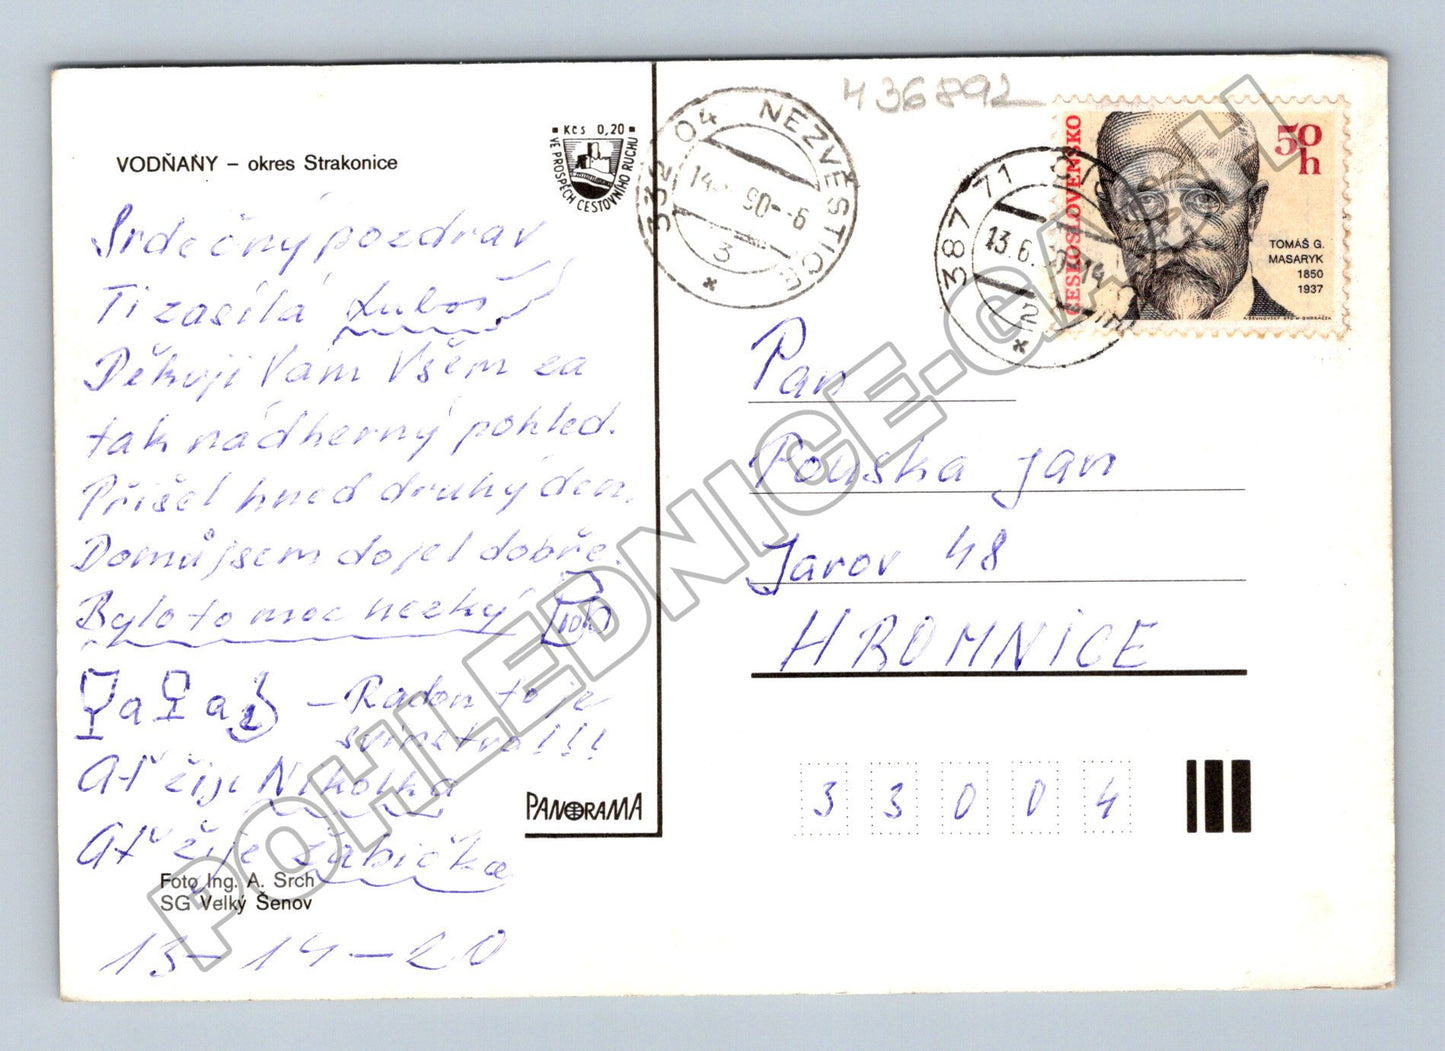 436892
VODŇANY – okres Strakonice
Kčs 0,20
VE PROSPĚCH CESTOVNÍHO RUCHU
332 04 NEZVĚSTICE
90--6
3
387 71
13.6.
14
2
ČESKOSLOVENSKO
50 h
TOMÁŠ G.
MASARYK
1850
1937
Srdečný pozdrav
Ti zasílá Luboš
Děkuji Vám Všem za
tak nádherný pohled.
Přišel hned druhý den.
Domů jsem dojel dobře.
Bylo to moc hezký
a a – Radon to je
svinstvo!!!
Ať žije Nikolka
Ať žije žabička
13-14-20
Foto Ing. A. Srch
SG Velký Šenov
PANORAMA
Pan
Pouska Jan
Jarov 48
HROMNICE
3 3 0 0 4
POHLEDNICE-CASH